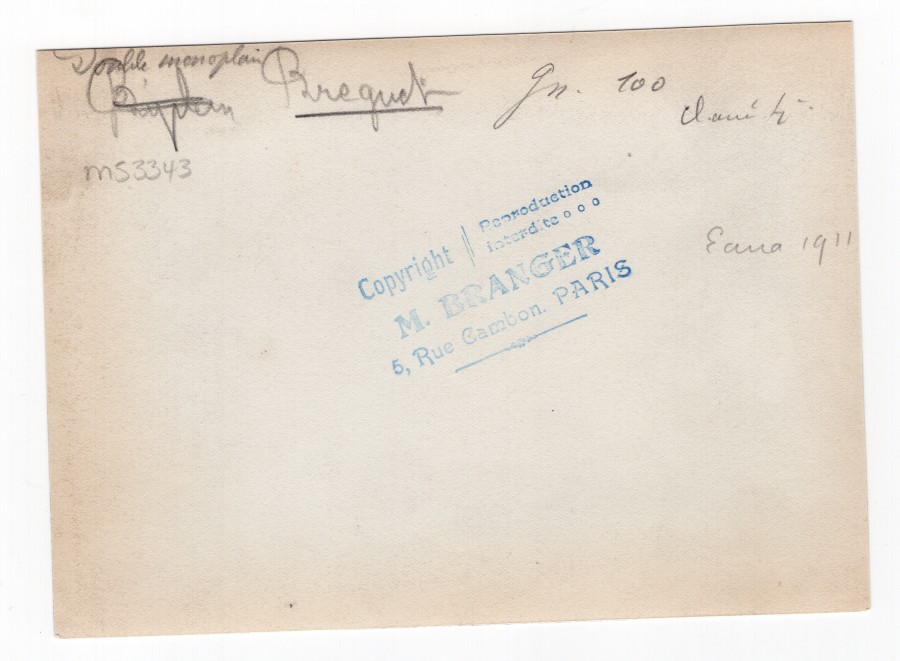 Double monoplain
Biplan Breguet
Gn. 100
mS3343
Copyright
Reproduction
interdite o o o
M. BRANGER
5, Rue Cambon. PARIS
1911